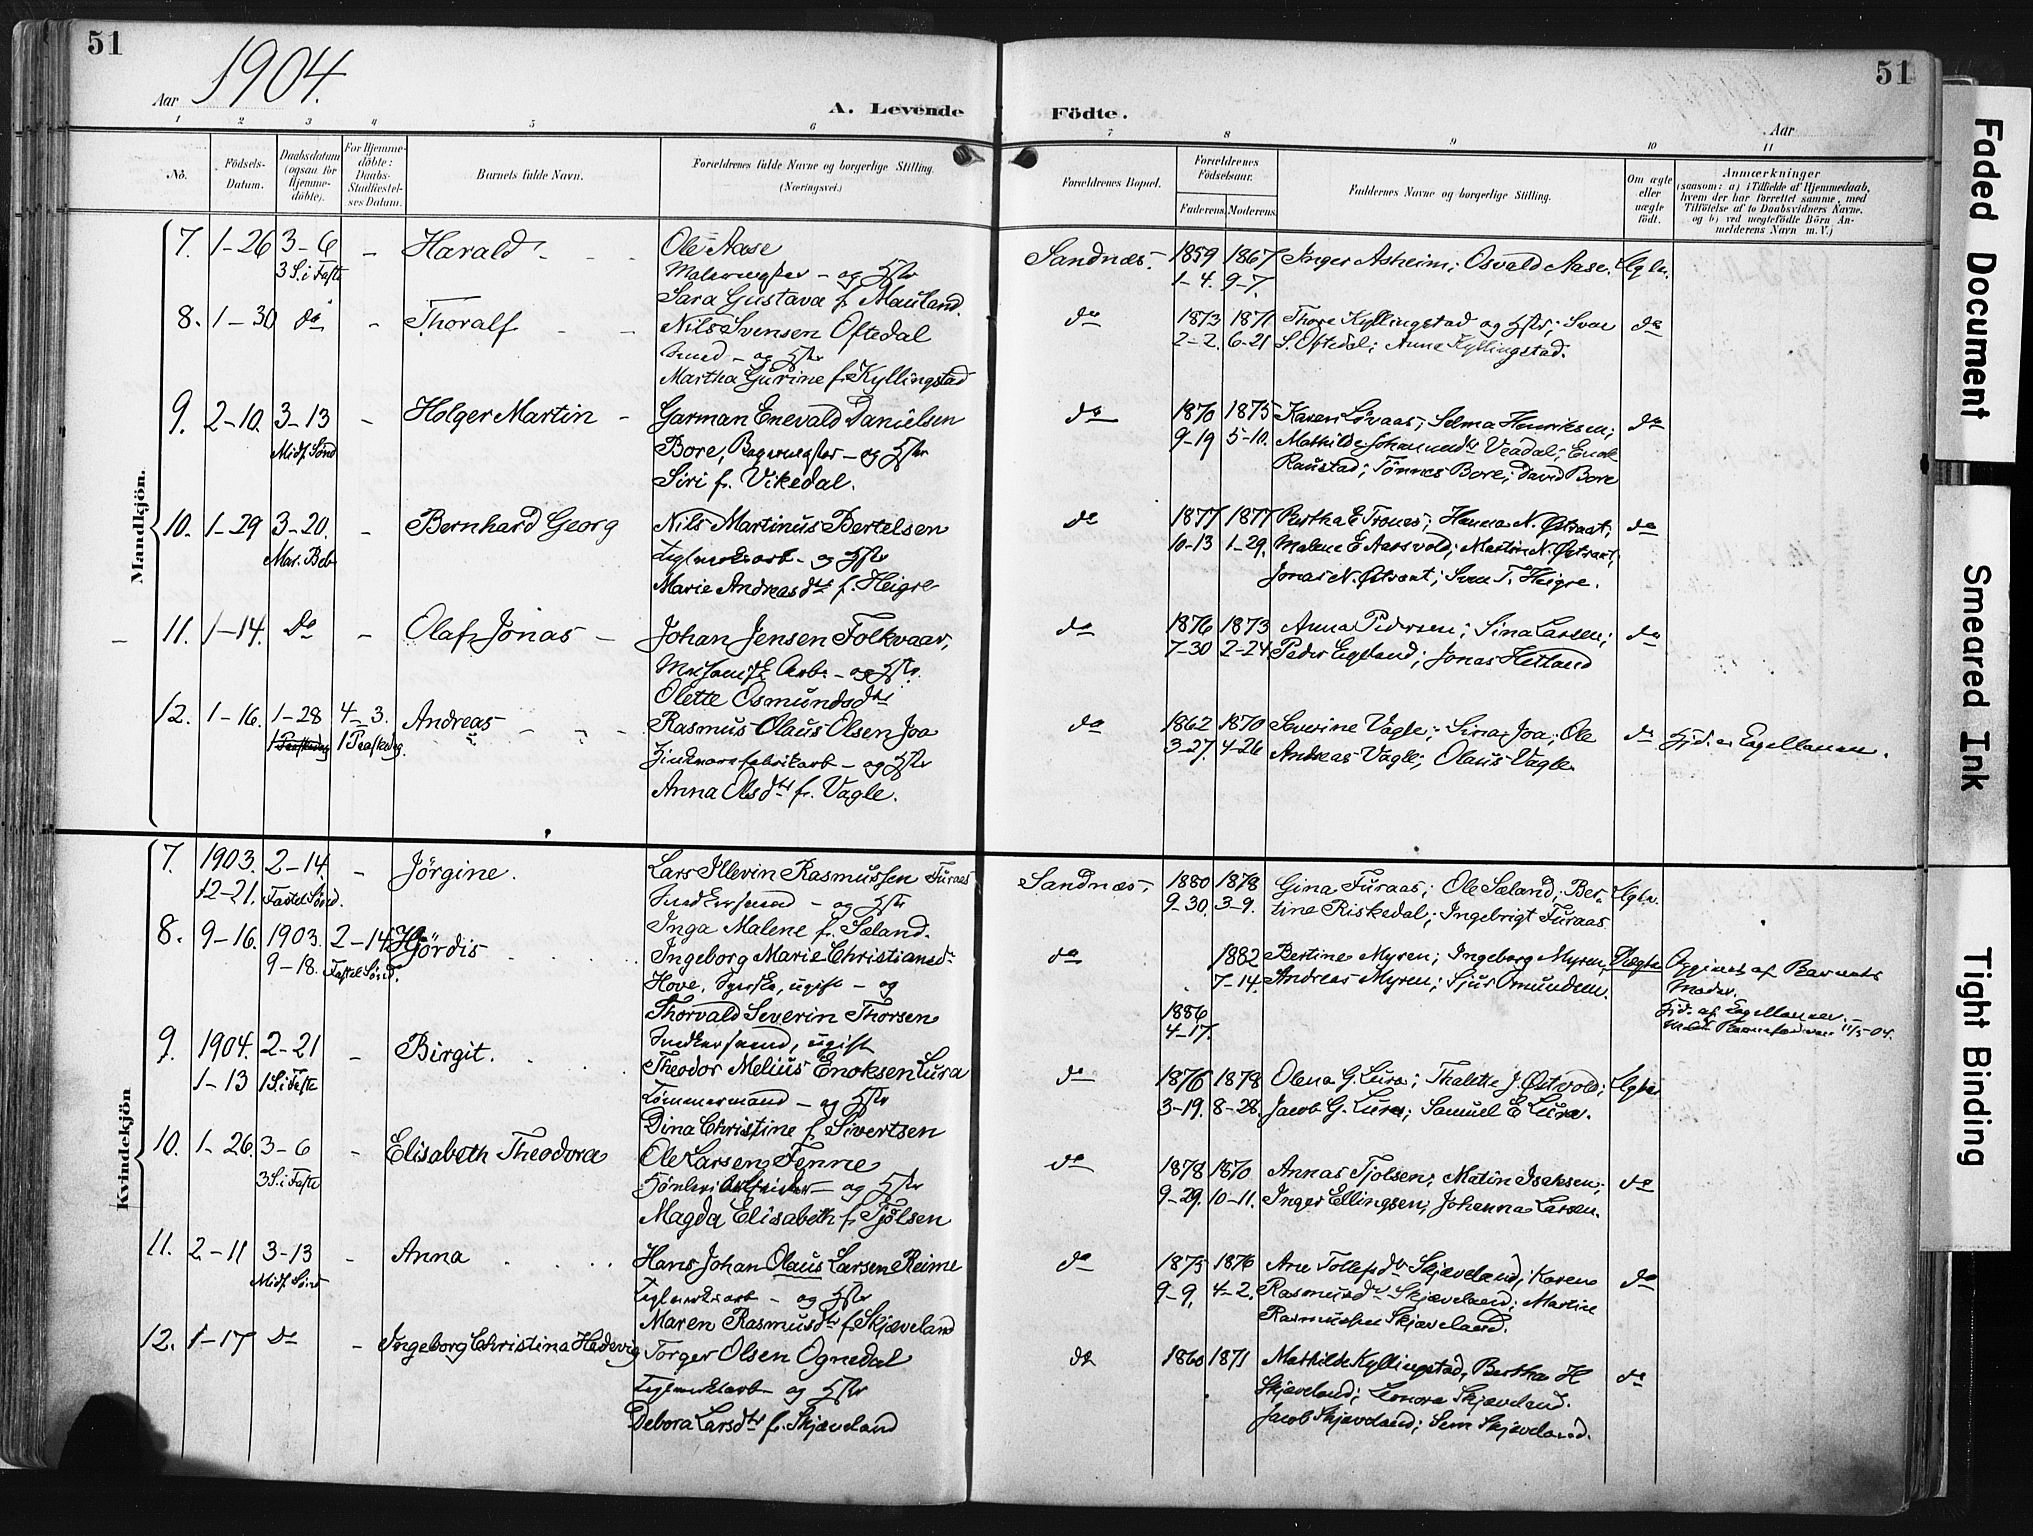 51
Aar 1904.
A. Levende
Födte.
51
Aar
1 2 3 4 5 6 7 8 9 10 11
No.
Födsels-Datum.
Daabsdatum (ogsaa for Hjemme-döbte).
For Hjemme-döbte: Daabs-Stadfæstel-ses Datum.
Barnets fulde Navn.
Forældrenes fulde Navne og borgerlige Stilling. (Næringsvei.)
Forældrenes Bopæl.
Forældrenes Födselsaar.
Faderens. Moderens.
Faddernes Navne og borgerlige Stilling.
Om ægte eller uægte födt.
Anmærkninger
(saasom: a) i Tilfælde af Hjemmedaab, hvem der har forrettet samme, med Tilföielse af to Daabsvidners Navne, og b) ved uægtefödte Börn An-melderens Navn m. V.)
Mandkjön.
7. 1-26 3-6 - Harald - - Ole Aase Sandnæs. 1859 1867 Inger Asheim; Osvald Aase.
3 S. i Faste - og Hstr 1-4. 9-7.
Sara Gustava f. Mauland.
8. 1-30 do - Thoralf - - Nils Svensen Oftedal do 1873 1871 Thore Kyllingstad og Hstr; do
Smed - og Hstr 2-2. 6-21 S. Oftedal; Anne Kyllingstad.
Martha Gurine f. Kyllingstad
9. 2-10. 3-13 - Holger Martin - Garman Enevald Danielsen do 1870 1875 Karen Lövaas; Selma Henriksen; do
Midf. Sönd Bore, - og Hstr 9-19 5-10. Mathilde
Siri f. Vikedal. Raustad; Tönnes Bore; David Bore
10. 1-29 3-20. - Bernhard Georg Nils Martinus Bertelsen do 1877 1877 Bertha E. Trones; Hanna N. Østraat; do
Mar. Beb - og Hstr 10-13 1-29. Malene E. Aarsvold; Martin N. Østraat;
Marie Andreasdtr f. Heigre Jonas N. Østraat; Sven T. Heigre.
11. 1-14. Do - Olaf Jonas - Johan Jensen Folkvaar, do 1876 1873 Anna Pedersen; Sina Larsen; do
Arb. - og Hstr. 7-30 2-24 Peder Egeland; Jonas Hetland
Olette Osmundsdtr
12. 1-16. 1-28 4-3. Andreas - - - Rasmus Olaus Olsen Joa do 1862 1870 Severine Vagle; Sina Joa; Ole do
1 Paaskedag. - og Hstr 3-27. 4-26 Andreas Vagle; Olaus Vagle.
Anna Olsdtr f. Vagle.
Kvindekjön
7. 1903. 2-14. - Jörgine. Lars Illevin Rasmussen Furaas Sandnæs. 1880 1878 Gina Furaas; Ole Sæland; Ber-
12-21. Fastel. Sönd. - og Hstr 9-30. 3-9. tine Riskedal; Ingebrigt Furaas.
Inga Malene f. Sæland.
8. 9-16. 1903. 2-14 Hjördis Ingeborg Marie Christiansdr do 1882 Bertine Myren; Ingeborg Myren; Uægte Opgivet af Barnets
9-18. Fastel. Sönd. Hove, ugift - og 7-14. Andreas Myren; Sjur Omundsen. Moder.
Thorvald Severin Thorsen 1886
ugift 4-17.
9. 1904. 2-21 - Birgit. Theodor Melius Enoksen Lura do 1876 1878 Olena G. Lura; Thalette J. Østvold;
1-13 1 S. i Faste Tömmermand - og Hstr 3-19. 8-28. Jacob G. Lura; Samuel E. Lura.
Dina Christine f. Sivertsen
10. 1-26. 3-6 - Elisabeth Theodora Ole Larsen Fenne do 1878 1870 Annas Tjolsen; Matin Isaksen; do
3 S. i Faste - og Hstr 9-29. 10-11. Inger Ellingsen; Johanna Larsen.
Magda Elisabeth f. Tjölsen
11. 2-11 3-13 - Anna Hans Johan Olaus Larsen Reime do 1875 1876 Ane Tollefsdtr Skjæveland; Karen do
Midf. Sönd - og Hstr 9-9. 4-2. Rasmusdtr Skjæveland; Martin
Maren Rasmusdtr f. Skjæveland Rasmussen Skjæveland.
12. 1-17 Do - Ingeborg Christina Hedevig Torger Olsen Ognedal do 1860 1871 Mathilde Kyllingstad, Bertha H do
- og Hstr Skjæveland; Lenora Skjæveland.
Debora Larsdtr f. Skjæveland Jacob Skjæveland; Sem Skjæveland.
Faded Document
Smeared Ink
Tight Binding